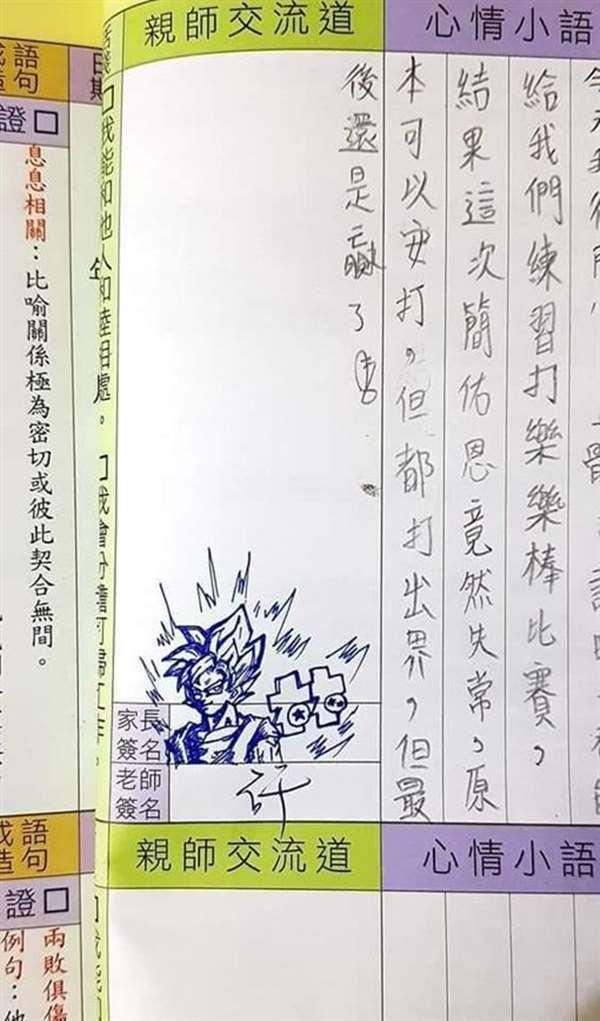 親師交流道
心情小語
給我們練習打樂樂棒比賽，
結果這次簡佑恩竟然失常，原
本可以安打，但都打出界，但最
後還是贏了
家長
簽名
老師
簽名
許
親師交流道
心情小語
語
句
日期
證
息息相關：比喻關係極為密切或彼此契合無間。
我能和他人和睦相處。
語
造句
證
兩敗俱傷
例句：他